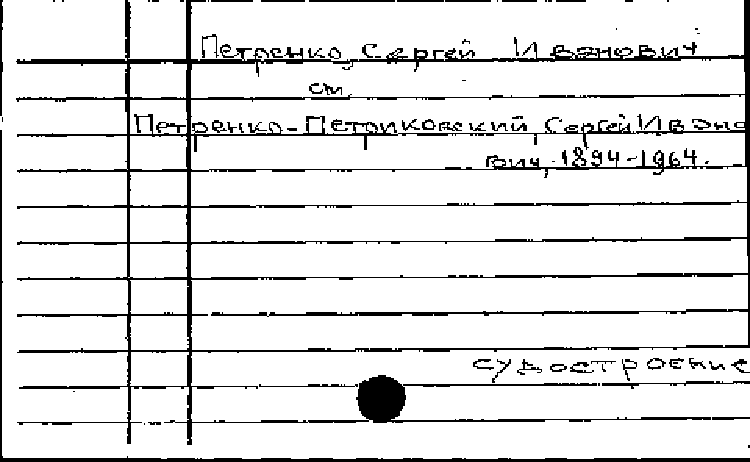 Петренко, Сергей Иванович
см.
Петренко-Петриковский, Сергей Ивано
вич, 1894-1964.
судостроение